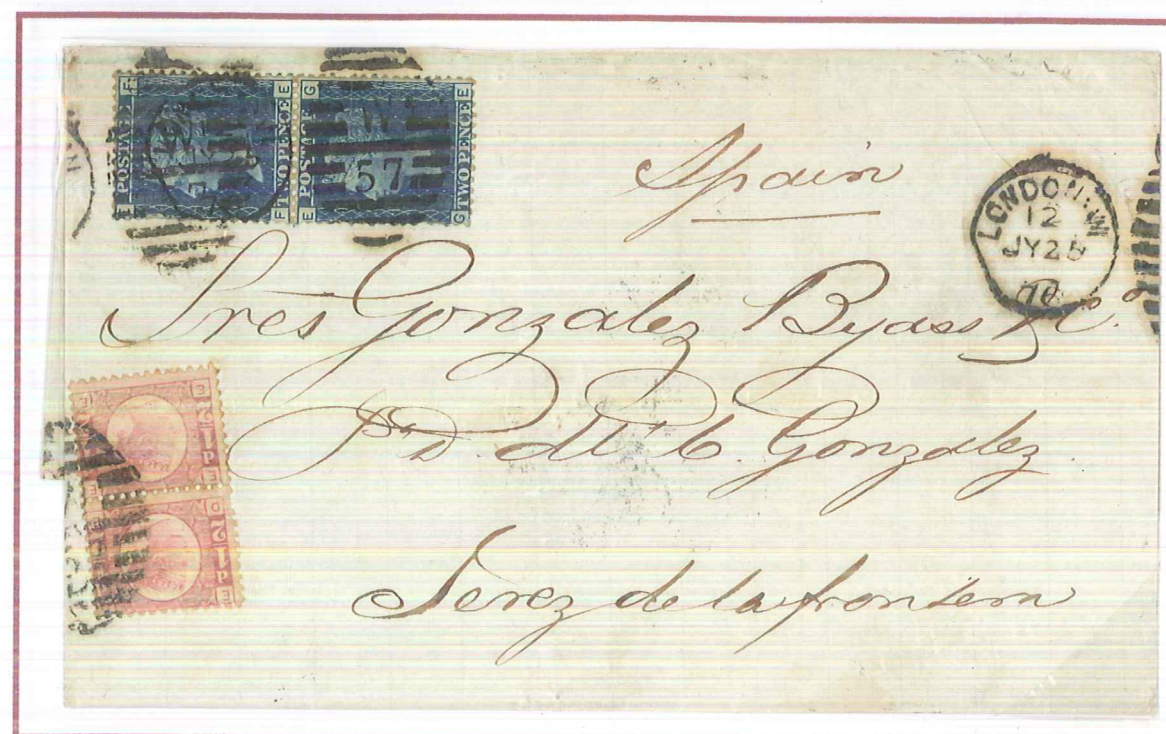 POSTAGE TWOPENCE
POSTAGE TWOPENCE
W
57
Spain
LONDON·W
12
JY 25
70
Sres Gonzalez Byass & Co
Gonzalez
Jerez de la frontera